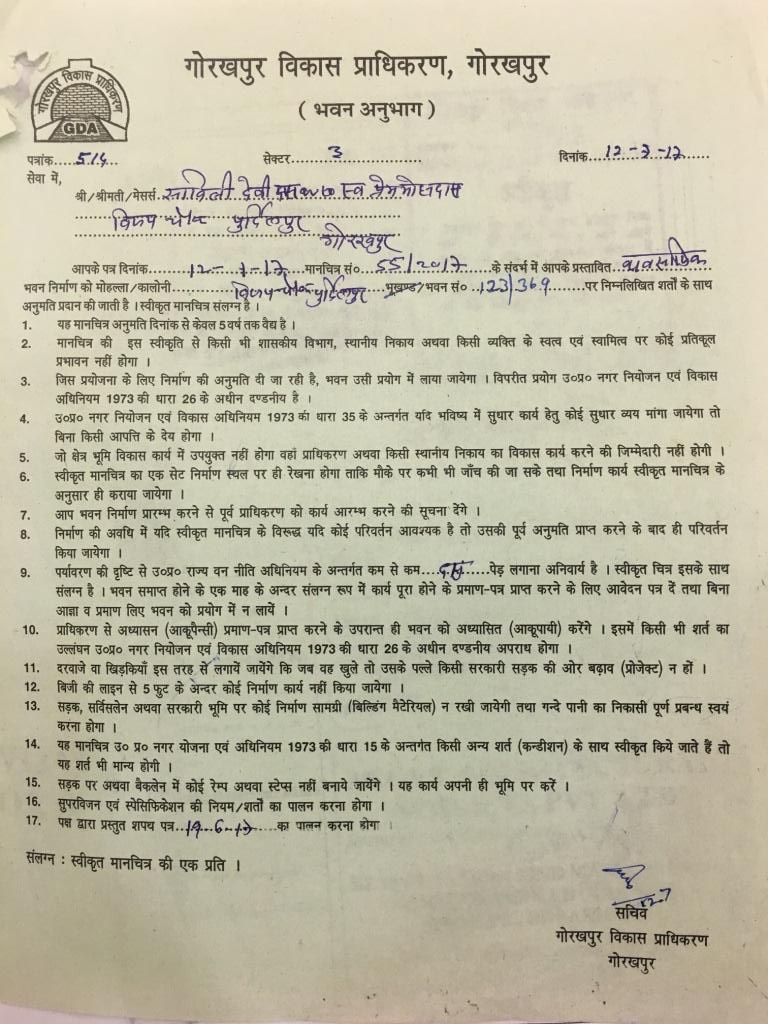 गोरखपुर विकास प्राधिकरण, गोरखपुर
( भवन अनुभाग )
गोरखपुर विकास प्राधिकरण
GDA
पत्रांक.....514... सेक्टर............3............ दिनांक...12-7-17...
सेवा में,
श्री/श्रीमती/मेसर्स. देवी w/o स्व
पुर्दिलपुर
गोरखपुर
आपके पत्र दिनांक.......12-1-17.......मानचित्र सं० 55/2017 के संदर्भ में आपके प्रस्तावित व्यवसायिक
भवन निर्माण को मोहल्ला/कालोनी पुर्दिलपुर भूखण्ड/भवन सं० 123/369 पर निम्नलिखित शर्तों के साथ
अनुमति प्रदान की जाती है । स्वीकृत मानचित्र संलग्न है ।
1. यह मानचित्र अनुमति दिनांक से केवल 5 वर्ष तक वैद्य है ।
2. मानचित्र की इस स्वीकृति से किसी भी शासकीय विभाग, स्थानीय निकाय अथवा किसी व्यक्ति के स्वत्व एवं स्वामित्व पर कोई प्रतिकूल
प्रभावन नहीं होगा ।
3. जिस प्रयोजना के लिए निर्माण की अनुमति दी जा रही है, भवन उसी प्रयोग में लाया जायेगा । विपरीत प्रयोग उ०प्र० नगर नियोजन एवं विकास
अधिनियम 1973 की धारा 26 के अधीन दण्डनीय है ।
4. उ०प्र० नगर नियोजन एवं विकास अधिनियम 1973 की धारा 35 के अन्तर्गत यदि भविष्य में सुधार कार्य हेतु कोई सुधार व्यय मांगा जायेगा तो
बिना किसी आपत्ति के देय होगा ।
5. जो क्षेत्र भूमि विकास कार्य में उपयुक्त नहीं होगा वहाँ प्राधिकरण अथवा किसी स्थानीय निकाय का विकास कार्य करने की जिम्मेदारी नहीं होगी ।
6. स्वीकृत मानचित्र का एक सेट निर्माण स्थल पर ही रखेना होगा ताकि मौके पर कभी भी जाँच की जा सके तथा निर्माण कार्य स्वीकृत मानचित्र के
अनुसार ही कराया जायेगा ।
7. आप भवन निर्माण प्रारम्भ करने से पूर्व प्राधिकरण को कार्य आरम्भ करने की सूचना देंगे ।
8. निर्माण की अवधि में यदि स्वीकृत मानचित्र के विरूद्ध यदि कोई परिवर्तन आवश्यक है तो उसकी पूर्व अनुमति प्राप्त करने के बाद ही परिवर्तन
किया जायेगा ।
9. पर्यावरण की दृष्टि से उ०प्र० राज्य वन नीति अधिनियम के अन्तर्गत कम से कम....दस.....पेड़ लगाना अनिवार्य है । स्वीकृत चित्र इसके साथ
संलग्न है । भवन समाप्त होने के एक माह के अन्दर संलग्न रूप में कार्य पूरा होने के प्रमाण-पत्र प्राप्त करने के लिए आवेदन पत्र दें तथा बिना
आज्ञा व प्रमाण लिए भवन को प्रयोग में न लायें ।
10. प्राधिकरण से अध्यासन (आकूपैन्सी) प्रमाण-पत्र प्राप्त करने के उपरान्त ही भवन को अध्यासित (आकूपायी) करेंगे । इसमें किसी भी शर्त का
उल्लंघन उ०प्र० नगर नियोजन एवं विकास अधिनियम 1973 की धारा 26 के अधीन दण्डनीय अपराध होगा ।
11. दरवाजे वा खिड़कियाँ इस तरह से लगायें जायेंगे कि जब वह खुले तो उसके पल्ले किसी सरकारी सड़क की ओर बढ़ाव (प्रोजेक्ट) न हों ।
12. बिजी की लाइन से 5 फुट के अन्दर कोई निर्माण कार्य नहीं किया जायेगा ।
13. सड़क, सर्विसलेन अथवा सरकारी भूमि पर कोई निर्माण सामग्री (बिल्डिंग मैटेरियल) न रखी जायेगी तथा गन्दे पानी का निकासी पूर्ण प्रबन्ध स्वयं
करना होगा ।
14. यह मानचित्र उ० प्र० नगर योजना एवं अधिनियम 1973 की धारा 15 के अन्तर्गत किसी अन्य शर्त (कन्डीशन) के साथ स्वीकृत किये जाते हैं तो
यह शर्त भी मान्य होगी ।
15. सड़क पर अथवा बैकलेन में कोई रेम्प अथवा स्टेप्स नहीं बनाये जायेंगे । यह कार्य अपनी ही भूमि पर करें ।
16. सुपरविजन एवं स्पेसिफिकेशन की नियम/शर्तों का पालन करना होगा ।
17. पक्ष द्वारा प्रस्तुत शपथ पत्र...19-6-17.....का पालन करना होगा ।
संलग्न : स्वीकृत मानचित्र की एक प्रति ।
सचिव
गोरखपुर विकास प्राधिकरण
गोरखपुर